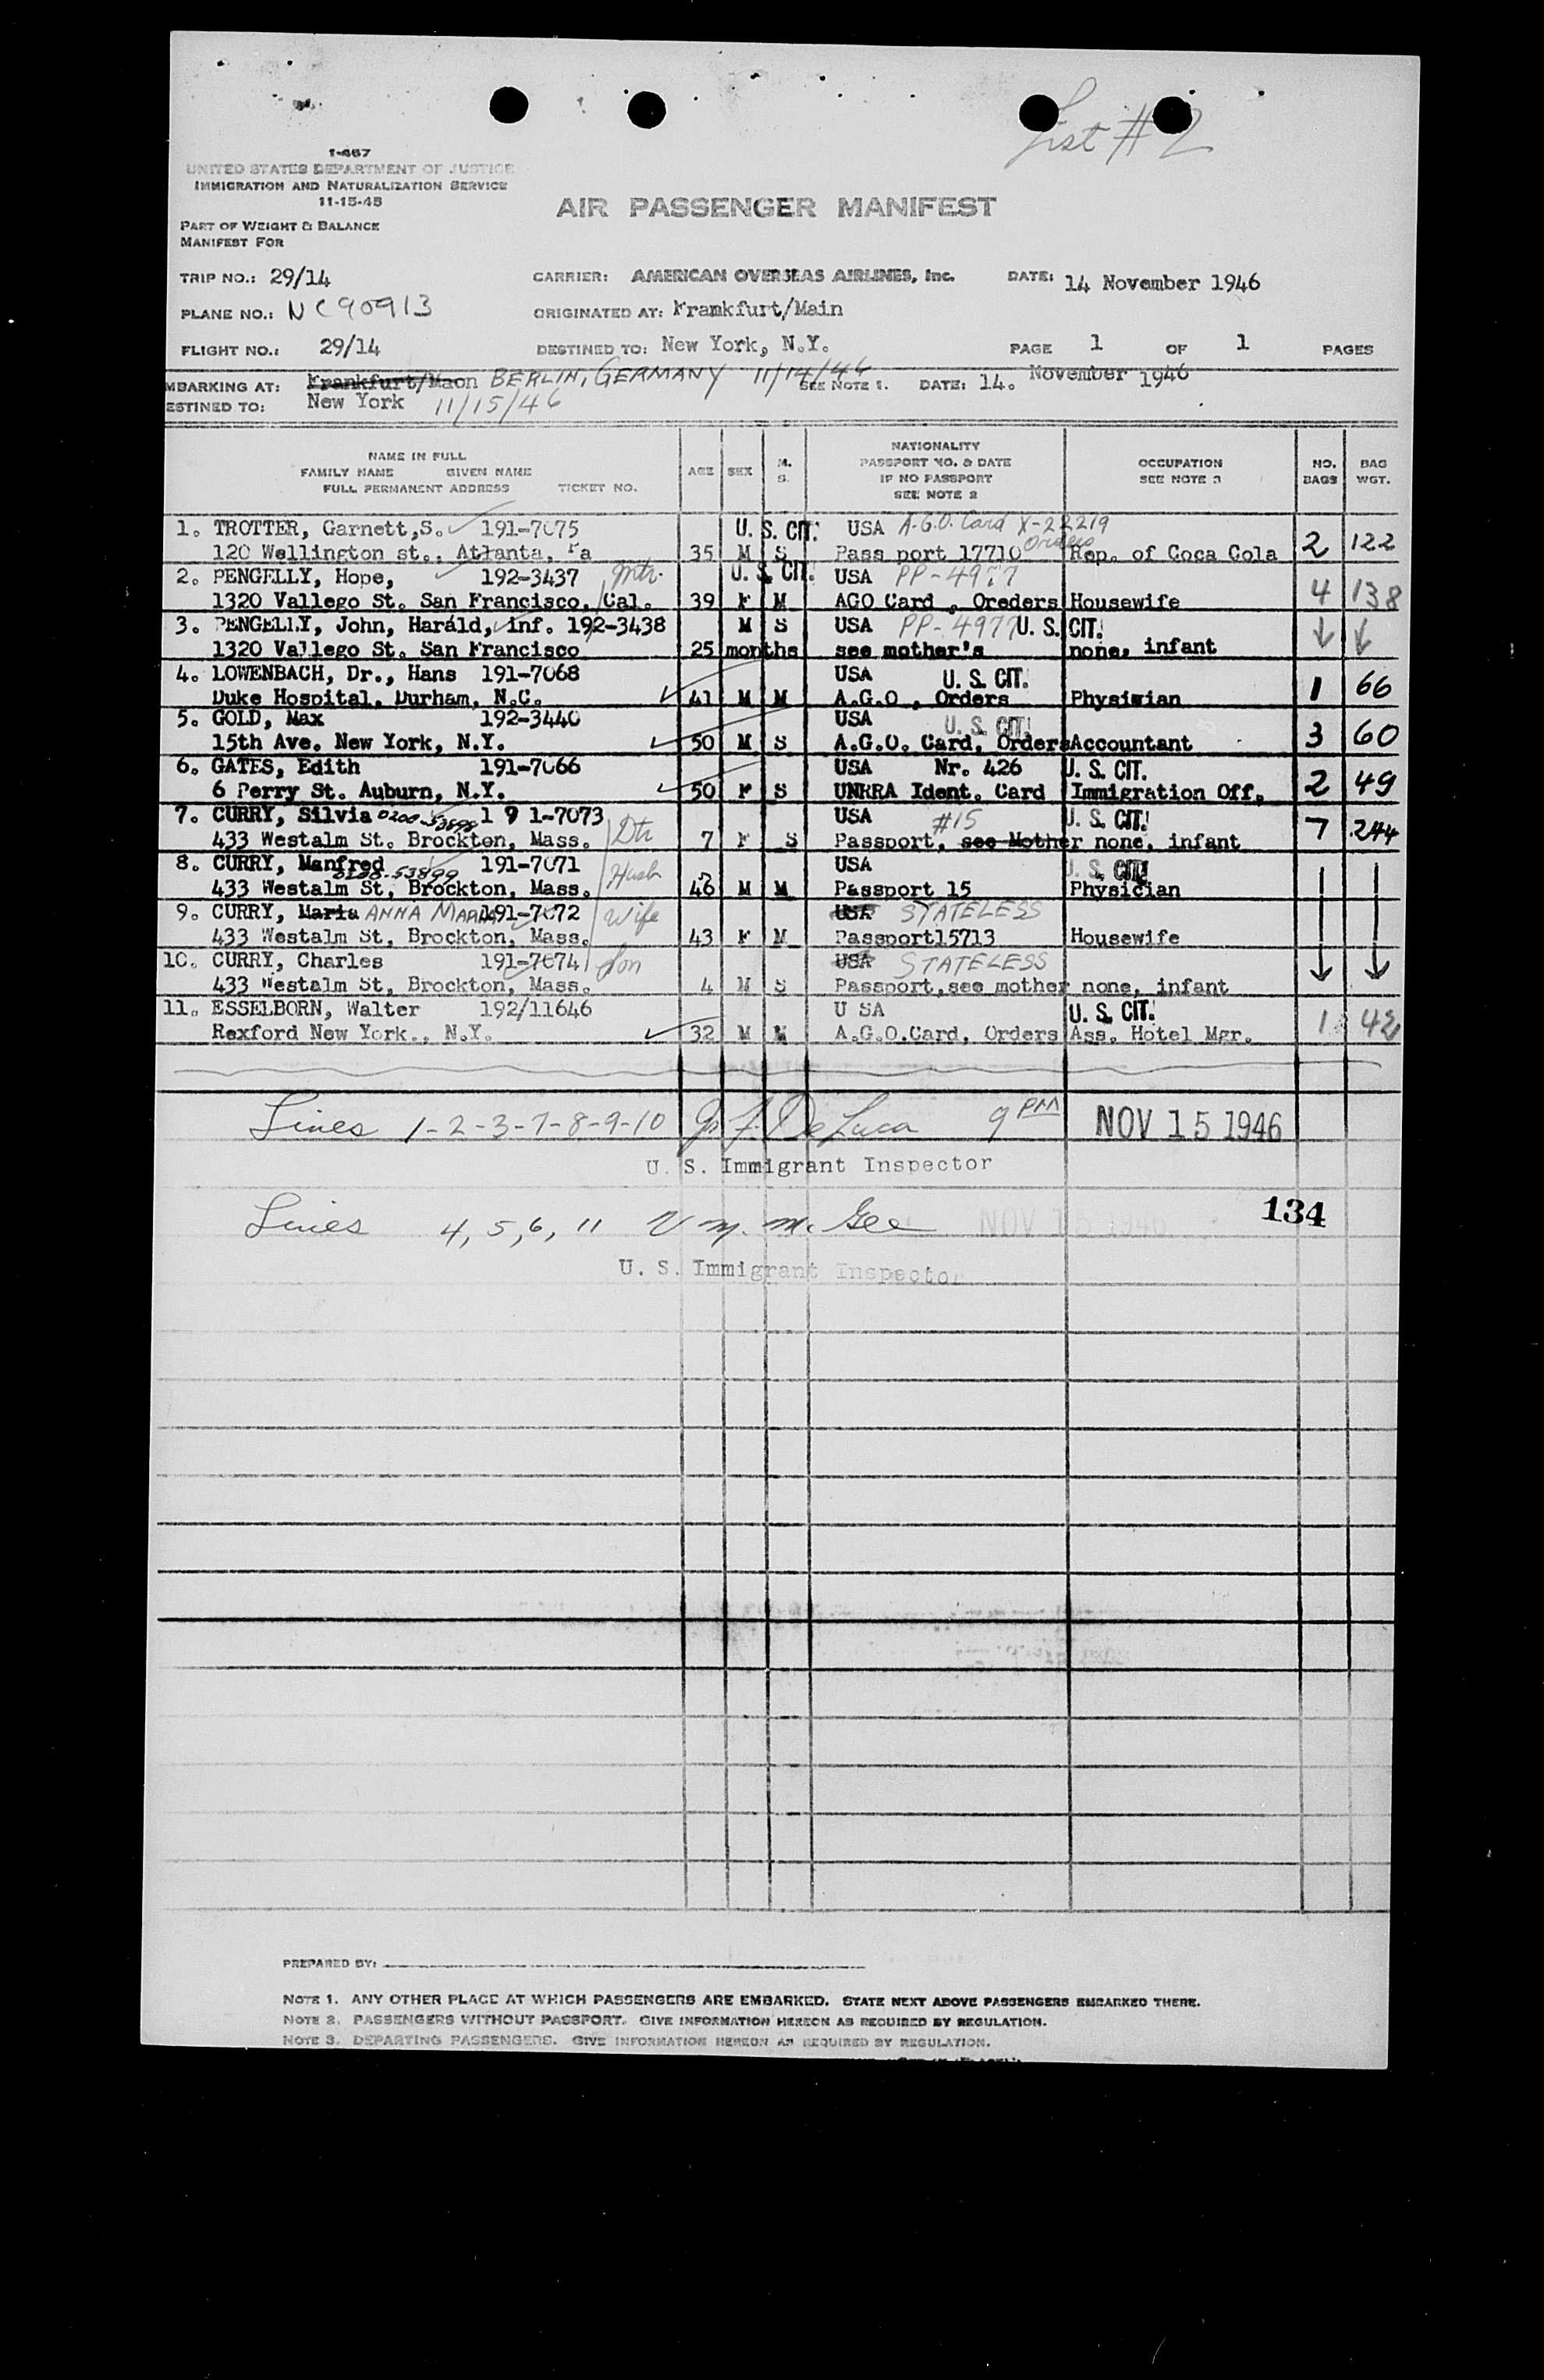 List # 2
I-467
UNITED STATES DEPARTMENT OF JUSTICE
IMMIGRATION AND NATURALIZATION SERVICE
11-15-45
AIR PASSENGER MANIFEST
PART OF WEIGHT & BALANCE
MANIFEST FOR
TRIP NO.: 29/14 CARRIER: AMERICAN OVERSEAS AIRLINES, Inc. DATE: 14 November 1946
PLANE NO.: NC90913 ORIGINATED AT: Framkfurt/Main
FLIGHT NO.: 29/14 DESTINED TO: New York, N.Y. PAGE 1 OF 1 PAGES
MBARKING AT: Frankfurt/Maon BERLIN, GERMANY 11/14/46 SEE NOTE 1. DATE: 14. November 1946
ESTINED TO: New York 11/15/46
NAME IN FULL
FAMILY NAME GIVEN NAME
FULL PERMANENT ADDRESS TICKET NO.
AGE SEX M. S.
NATIONALITY
PASSPORT NO. & DATE
IF NO PASSPORT
SEE NOTE 2
OCCUPATION
SEE NOTE 3
NO. BAGS
BAG WGT.
1. TROTTER, Garnett,S. 191-7075 U. S. CIT. USA A.G.O. Card X-22219 Orders
120 Wellington st., Atlanta, 35 M S Pass port 17710 Rep. of Coca Cola 2 122
2. PENGELLY, Hope, 192-3437 mtr. U. S. CIT. USA PP-4977
1320 Vallego St. San Francisco, Cal. 39 F M AGO Card , Oreders Housewife 4 138
3. PENGELLY, John, Harald, inf. 192-3438 M S USA PP-4977 U. S. CIT.
1320 Vallego St. San Francisco 25 months see mother's none, infant
4. LOWENBACH, Dr., Hans 191-7068 USA U. S. CIT.
Duke Hospital, Durham, N.C. 41 M M A.G.O , Orders Physician 1 66
5. GOLD, Max 192-3440 USA U. S. CIT.
15th Ave. New York, N.Y. 50 M S A.G.O. Card, Orders Accountant 3 60
6. GATES, Edith 191-7066 USA Nr. 426 U. S. CIT.
6 Perry St. Auburn, N.Y. 50 F S UNRRA Ident. Card Immigration Off. 2 49
7. CURRY, Silvia 0200-53898 1 9 1-7073 Dtr USA #15 U. S. CIT.
433 Westalm St. Brockton, Mass. 7 F S Passport, see Mother none, infant 7 244
8. CURRY, Manfred 191-7071 Husb USA U. S. CIT.
0200-53899
433 Westalm St, Brockton, Mass. 46 M M Passport 15 Physician
9. CURRY, Maria ANNA MARIA 191-7072 Wife USA STATELESS
433 Westalm St, Brockton, Mass. 43 F M Passport15713 Housewife
10. CURRY, Charles 191-7074 Son USA STATELESS
433 Westalm St, Brockton, Mass. 4 M S Passport,see mother none, infant
11. ESSELBORN, Walter 192/11646 U SA U. S. CIT.
Rexford New York., N.Y. 32 M M A.G.O.Card, Orders Ass. Hotel Mgr. 1 42
Lines 1-2-3-7-8-9-10 De Luca 9 PM NOV 15 1946
U. S. Immigrant Inspector
134
Lines 4, 5, 6, 11 V. M. McGee NOV 15 1946
U. S. Immigrant Inspector
PREPARED BY:
NOTE 1. ANY OTHER PLACE AT WHICH PASSENGERS ARE EMBARKED. STATE NEXT ABOVE PASSENGERS EMBARKED THERE.
NOTE 2. PASSENGERS WITHOUT PASSPORT. GIVE INFORMATION HEREON AS REQUIRED BY REGULATION.
NOTE 3. DEPARTING PASSENGERS. GIVE INFORMATION HEREON AS REQUIRED BY REGULATION.